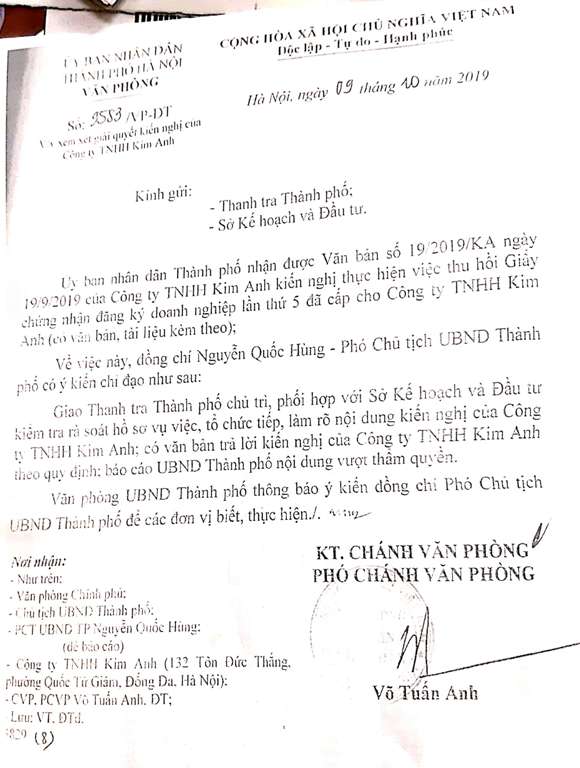 ỦY BAN NHÂN DÂN
THÀNH PHỐ HÀ NỘI
VĂN PHÒNG
CỘNG HÒA XÃ HỘI CHỦ NGHĨA VIỆT NAM
Độc lập - Tự do - Hạnh phúc
Số: 9583 /VP-ĐT
V/v xem xét giải quyết kiến nghị của
Công ty TNHH Kim Anh
Hà Nội, ngày 09 tháng 10 năm 2019
Kính gửi:
- Thanh tra Thành phố;
- Sở Kế hoạch và Đầu tư.
Ủy ban nhân dân Thành phố nhận được Văn bản số 19/2019/KA ngày
19/9/2019 của Công ty TNHH Kim Anh kiến nghị thực hiện việc thu hồi Giấy
chứng nhận đăng ký doanh nghiệp lần thứ 5 đã cấp cho Công ty TNHH Kim
Anh (có văn bản, tài liệu kèm theo);
Về việc này, đồng chí Nguyễn Quốc Hùng - Phó Chủ tịch UBND Thành
phố có ý kiến chỉ đạo như sau:
Giao Thanh tra Thành phố chủ trì, phối hợp với Sở Kế hoạch và Đầu tư
kiểm tra rà soát hồ sơ vụ việc, tổ chức tiếp, làm rõ nội dung kiến nghị của Công
ty TNHH Kim Anh; có văn bản trả lời kiến nghị của Công ty TNHH Kim Anh
theo quy định; báo cáo UBND Thành phố nội dung vượt thẩm quyền.
Văn phòng UBND Thành phố thông báo ý kiến đồng chí Phó Chủ tịch
UBND Thành phố để các đơn vị biết, thực hiện./.
Nơi nhận:
- Như trên;
- Văn phòng Chính phủ;
- Chủ tịch UBND Thành phố;
- PCT UBND TP Nguyễn Quốc Hùng;
(để báo cáo)
- Công ty TNHH Kim Anh (132 Tôn Đức Thắng,
phường Quốc Tử Giám, Đống Đa, Hà Nội);
- CVP, PCVP Võ Tuấn Anh, ĐT;
- Lưu: VT, ĐTd.
(8)
KT. CHÁNH VĂN PHÒNG
PHÓ CHÁNH VĂN PHÒNG
Võ Tuấn Anh